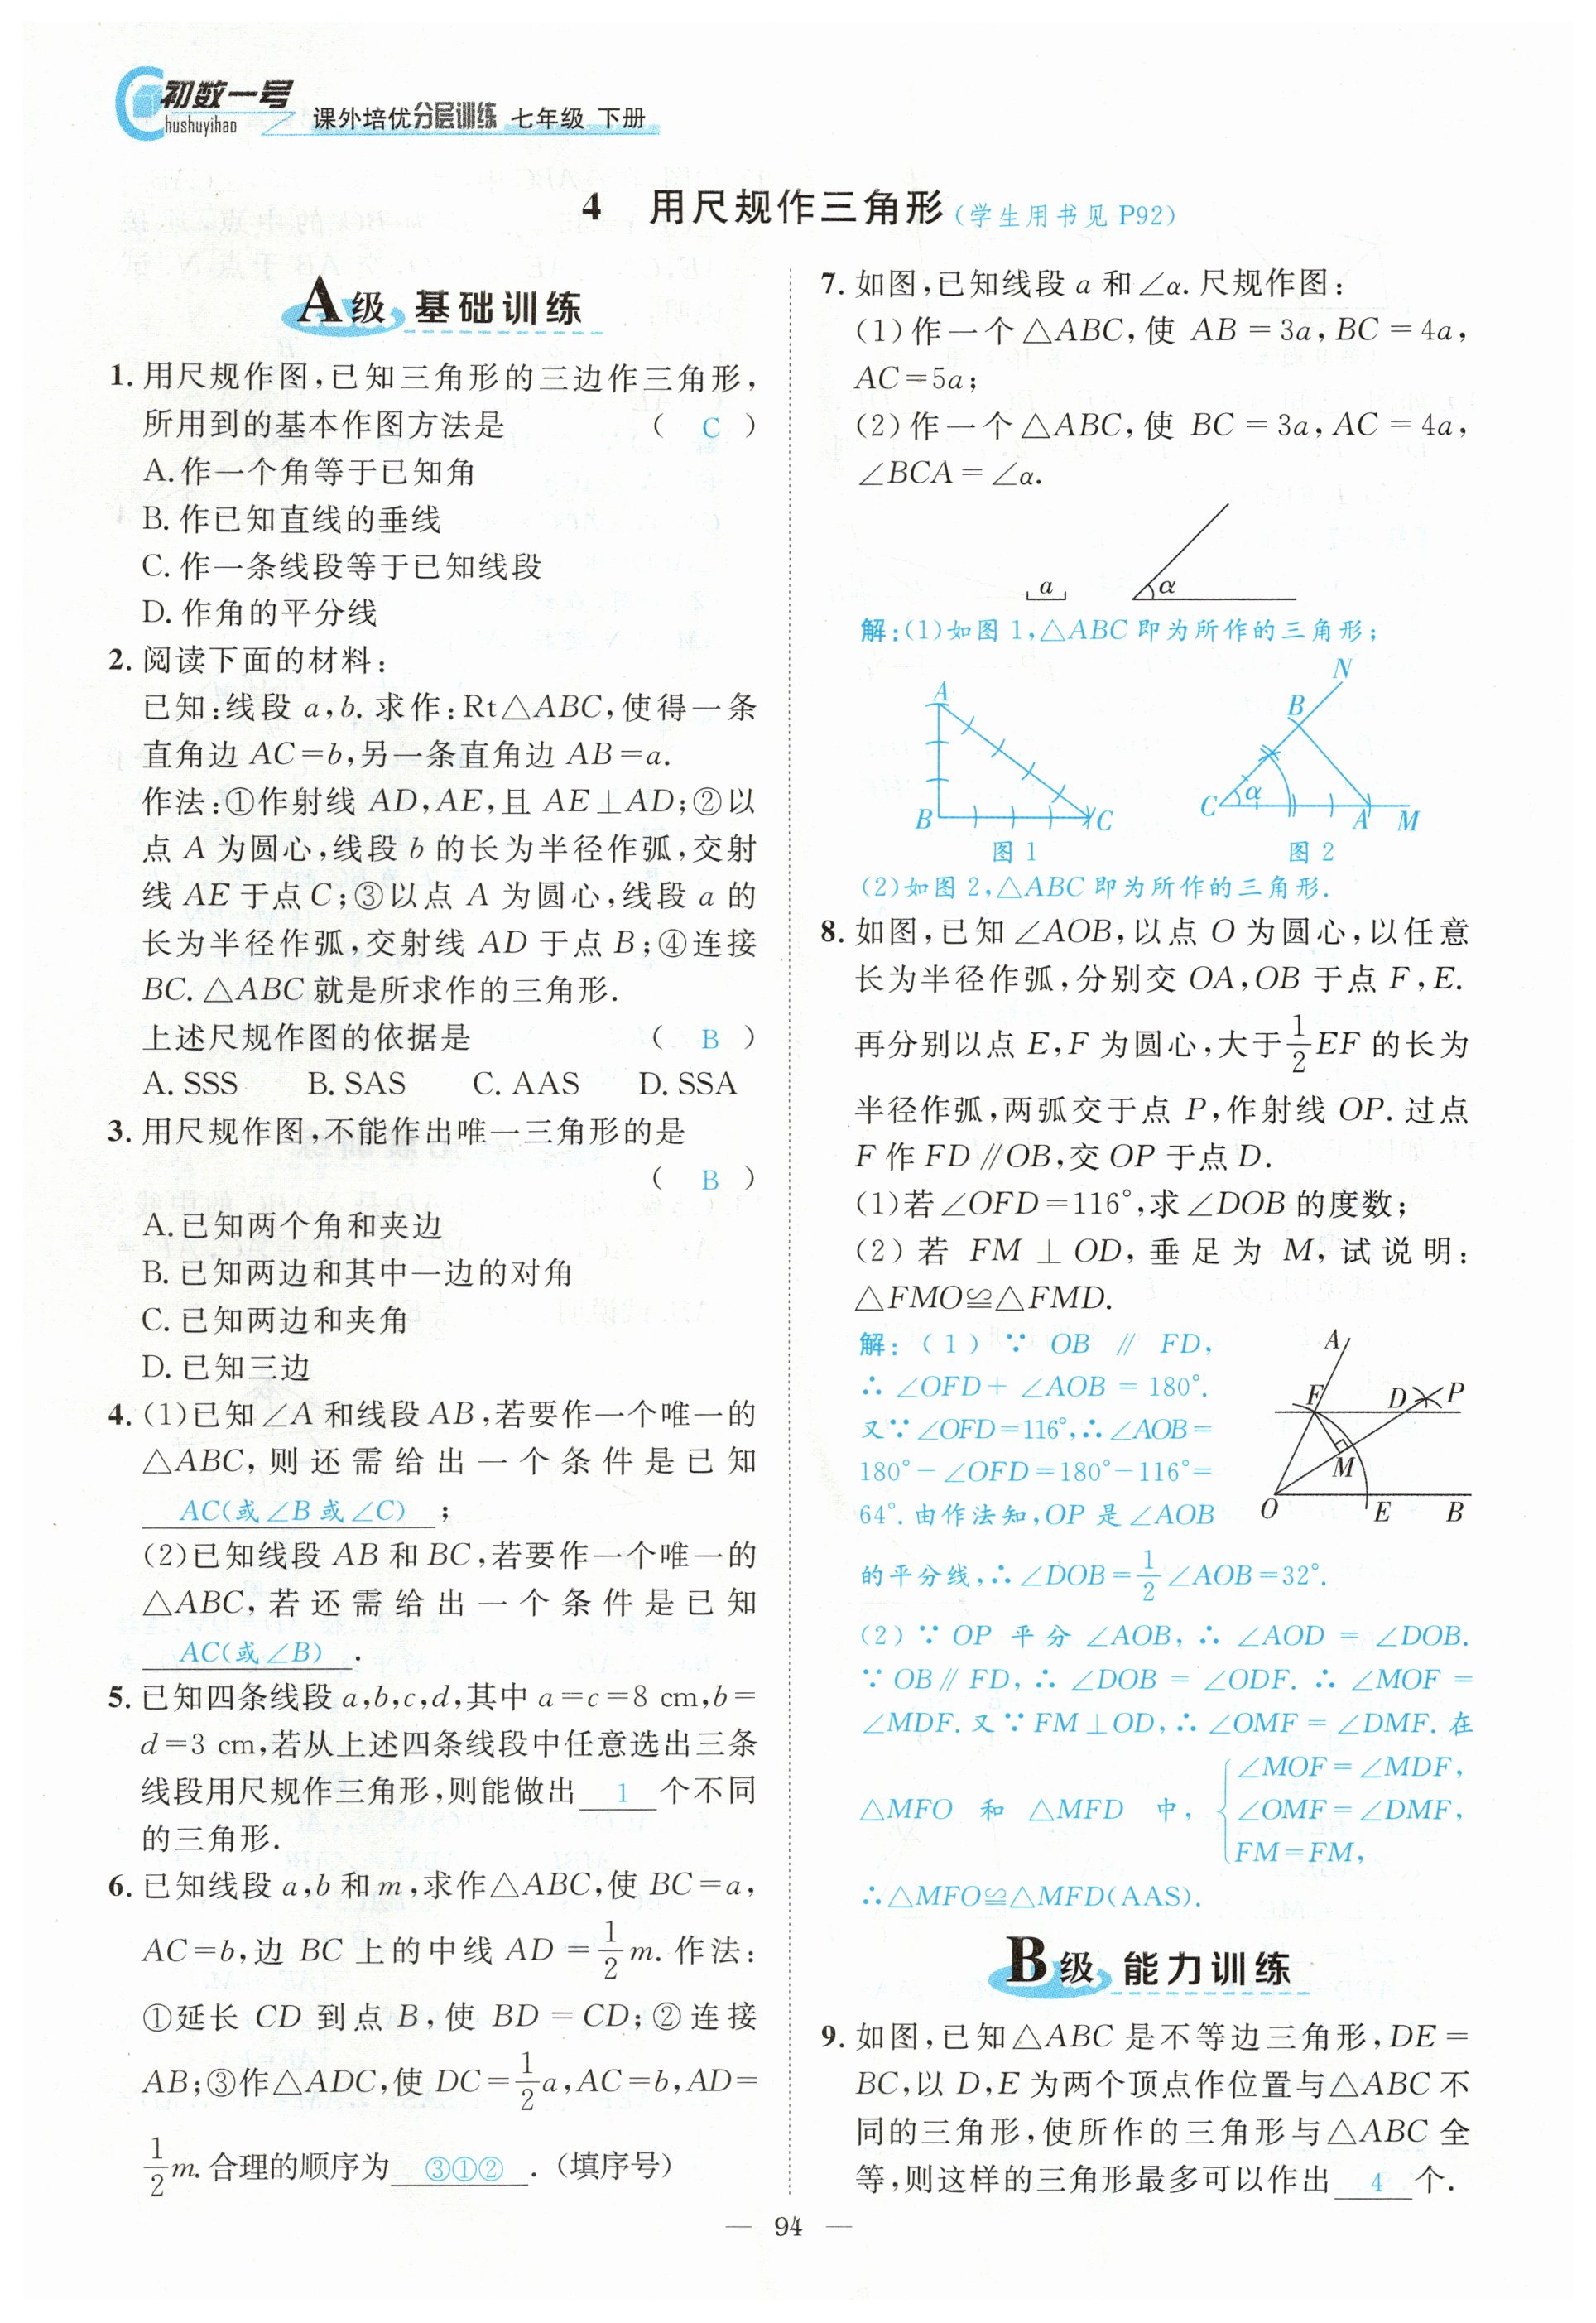 初数一号
Chushuyihao
课外培优分层训练 七年级 下册
4 用尺规作三角形(学生用书见 P92)
A级 基础训练
1. 用尺规作图,已知三角形的三边作三角形,
所用到的基本作图方法是 ( C )
A. 作一个角等于已知角
B. 作已知直线的垂线
C. 作一条线段等于已知线段
D. 作角的平分线
2. 阅读下面的材料:
已知:线段 a,b. 求作:Rt△ABC,使得一条
直角边 AC=b,另一条直角边 AB=a.
作法:①作射线 AD,AE,且 AE⊥AD;②以
点 A 为圆心,线段 b 的长为半径作弧,交射
线 AE 于点 C;③以点 A 为圆心,线段 a 的
长为半径作弧,交射线 AD 于点 B;④连接
BC. △ABC 就是所求作的三角形.
上述尺规作图的依据是 ( B )
A. SSS B. SAS C. AAS D. SSA
3. 用尺规作图,不能作出唯一三角形的是
( B )
A. 已知两个角和夹边
B. 已知两边和其中一边的对角
C. 已知两边和夹角
D. 已知三边
4. (1)已知∠A 和线段 AB,若要作一个唯一的
△ABC,则还需给出一个条件是已知
AC(或∠B 或∠C) ;
(2)已知线段 AB 和 BC,若要作一个唯一的
△ABC,若还需给出一个条件是已知
AC(或∠B) .
5. 已知四条线段 a,b,c,d,其中 a=c=8 cm,b=
d=3 cm,若从上述四条线段中任意选出三条
线段用尺规作三角形,则能做出 1 个不同
的三角形.
6. 已知线段 a,b 和 m,求作△ABC,使 BC=a,
AC=b,边 BC 上的中线 AD = 1/2 m. 作法:
①延长 CD 到点 B,使 BD = CD;②连接
AB;③作△ADC,使 DC= 1/2 a,AC=b,AD=
1/2 m. 合理的顺序为 ③①② . (填序号)
7. 如图,已知线段 a 和∠α. 尺规作图:
(1)作一个△ABC,使 AB = 3a,BC = 4a,
AC=5a;
(2)作一个△ABC,使 BC = 3a,AC = 4a,
∠BCA=∠α.
a α
解:(1)如图 1,△ABC 即为所作的三角形;
A B C
N B C α A M
图 1 图 2
(2)如图 2,△ABC 即为所作的三角形.
8. 如图,已知∠AOB,以点 O 为圆心,以任意
长为半径作弧,分别交 OA,OB 于点 F,E.
再分别以点 E,F 为圆心,大于 1/2 EF 的长为
半径作弧,两弧交于点 P,作射线 OP. 过点
F 作 FD∥OB,交 OP 于点 D.
(1)若∠OFD=116°,求∠DOB 的度数;
(2)若 FM ⊥ OD,垂足为 M,试说明:
△FMO≌△FMD.
解:(1)∵ OB ∥ FD,
∴∠OFD+∠AOB = 180°.
又∵∠OFD=116°,∴∠AOB=
180°-∠OFD=180°-116°=
64°. 由作法知,OP 是∠AOB
的平分线,∴∠DOB= 1/2 ∠AOB=32°.
A F D P M O E B
(2)∵ OP 平分∠AOB,∴∠AOD = ∠DOB.
∵ OB∥FD,∴∠DOB = ∠ODF. ∴∠MOF =
∠MDF. 又∵FM⊥OD,∴∠OMF = ∠DMF. 在
△MFO 和 △MFD 中,
∠MOF=∠MDF,
∠OMF=∠DMF,
FM=FM,
∴△MFO≌△MFD(AAS).
B级 能力训练
9. 如图,已知△ABC 是不等边三角形,DE =
BC,以 D,E 为两个顶点作位置与△ABC 不
同的三角形,使所作的三角形与△ABC 全
等,则这样的三角形最多可以作出 4 个.
— 94 —